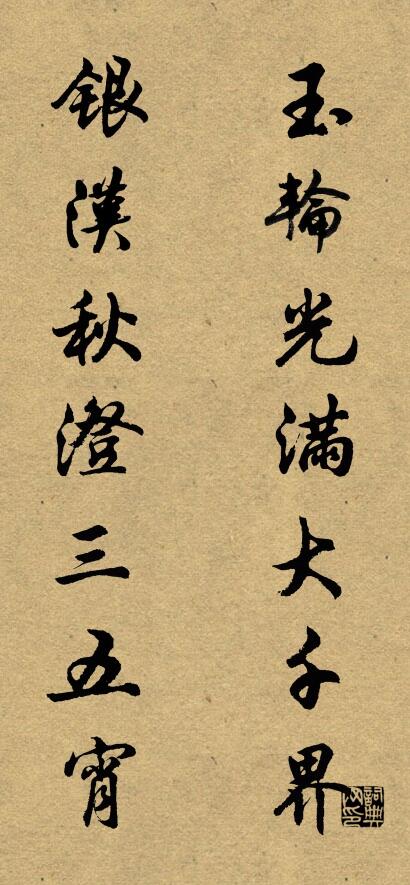 玉輪光滿大千界
銀漢秋澄三五宵